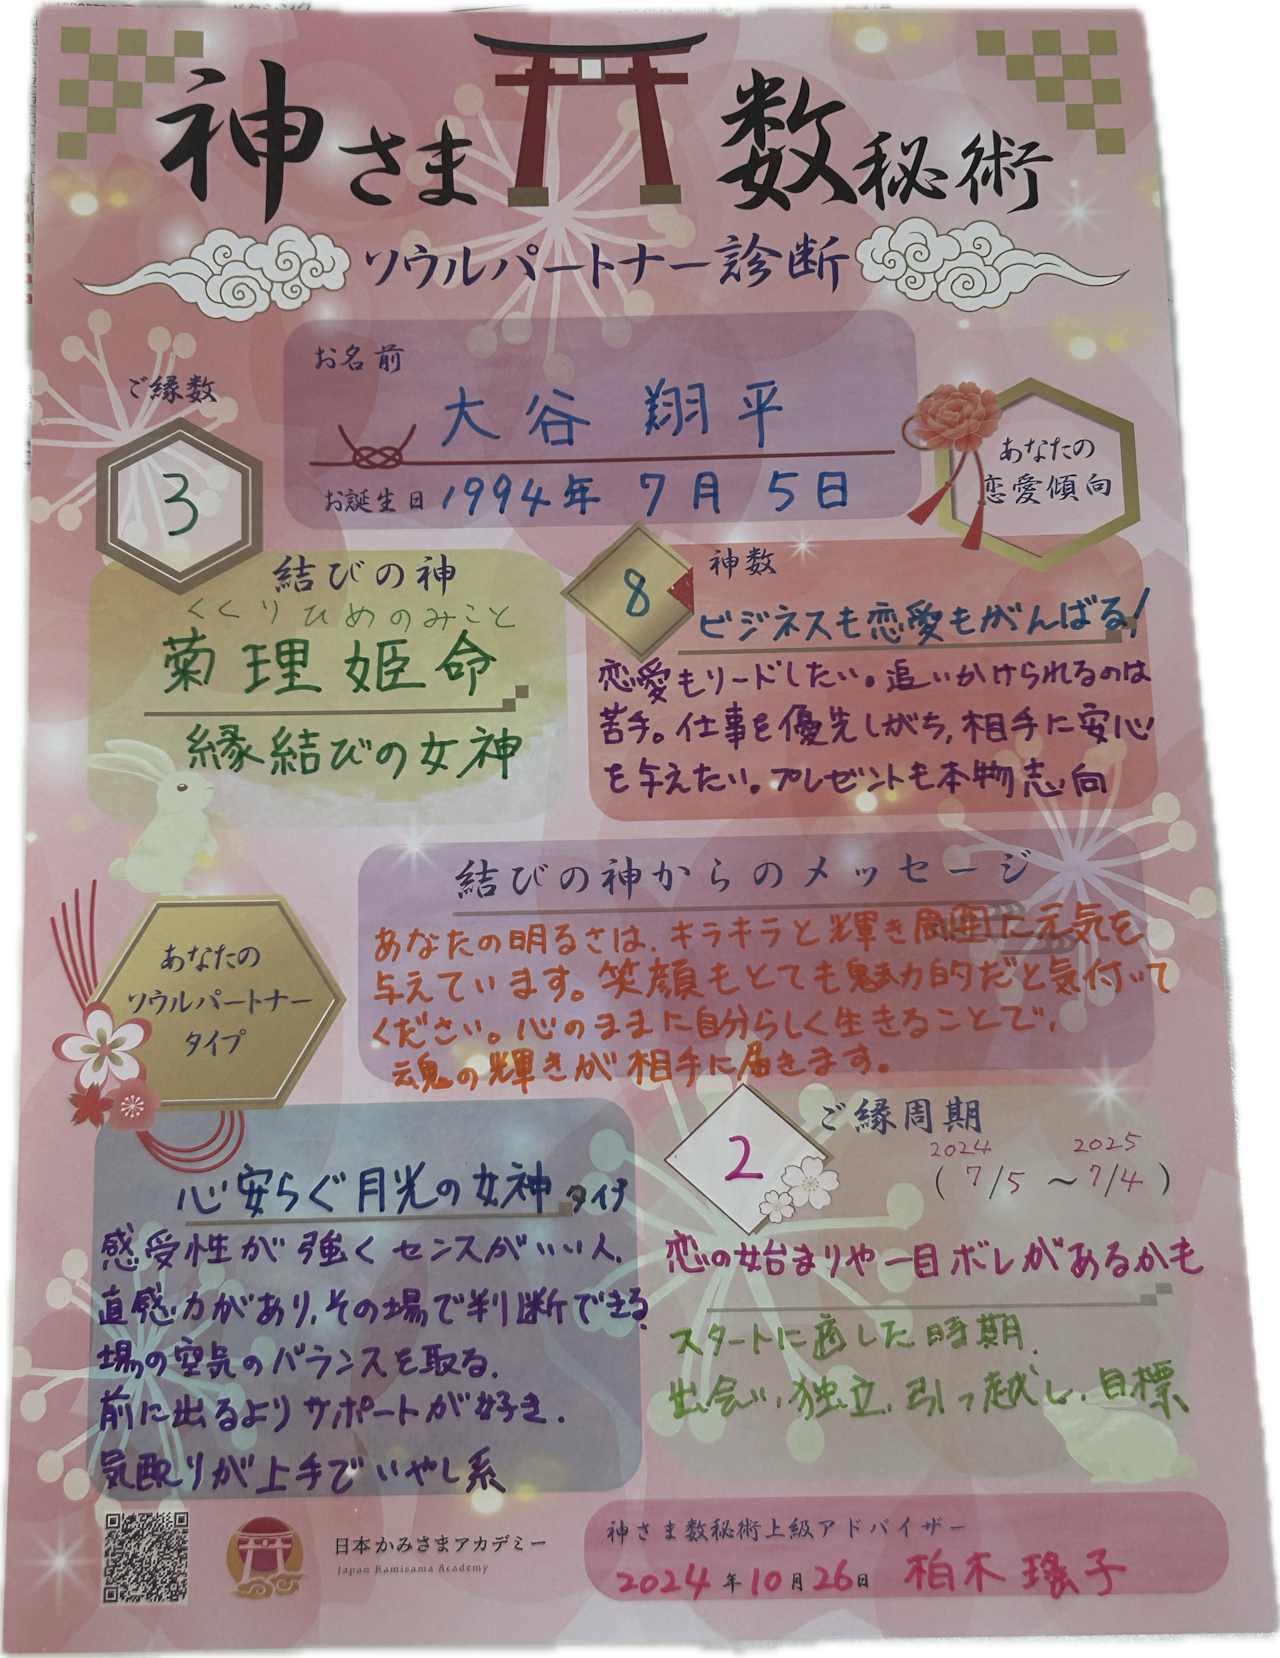 神さま数秘術
ソウルパートナー診断
お名前
大谷 翔平
お誕生日 1994年 7月 5日
ご縁数
3
あなたの
恋愛傾向
結びの神
くくりひめのみこと
菊理姫命
縁結びの女神
8
神数
ビジネスも恋愛もがんばる!
恋愛もリードしたい。追いかけられるのは
苦手。仕事を優先しがち,相手に安心
を与えたい。プレゼントも本物志向
結びの神からのメッセージ
あなたの明るさは、キラキラと輝き周囲に元気を
与えています。笑顔もとても魅力的だと気付いて
ください。心のままに自分らしく生きることで、
魂の輝きが相手に届きます。
あなたの
ソウルパートナー
タイプ
心安らぐ月光の女神タイプ
感受性が強くセンスがいい人、
直感力があり、その場で判断できる、
場の空気のバランスを取る、
前に出るよりサポートが好き.
気配りが上手でいやし系
2
ご縁周期
2024 2025
( 7/5 ～ 7/4 )
恋の始まりや一目ボレがあるかも
スタートに適した時期、
出会い、独立、引っ越し、目標
日本かみさまアカデミー
Japan Kamisama Academy
神さま数秘術上級アドバイザー
2024年10月26日 柏木 瑤子